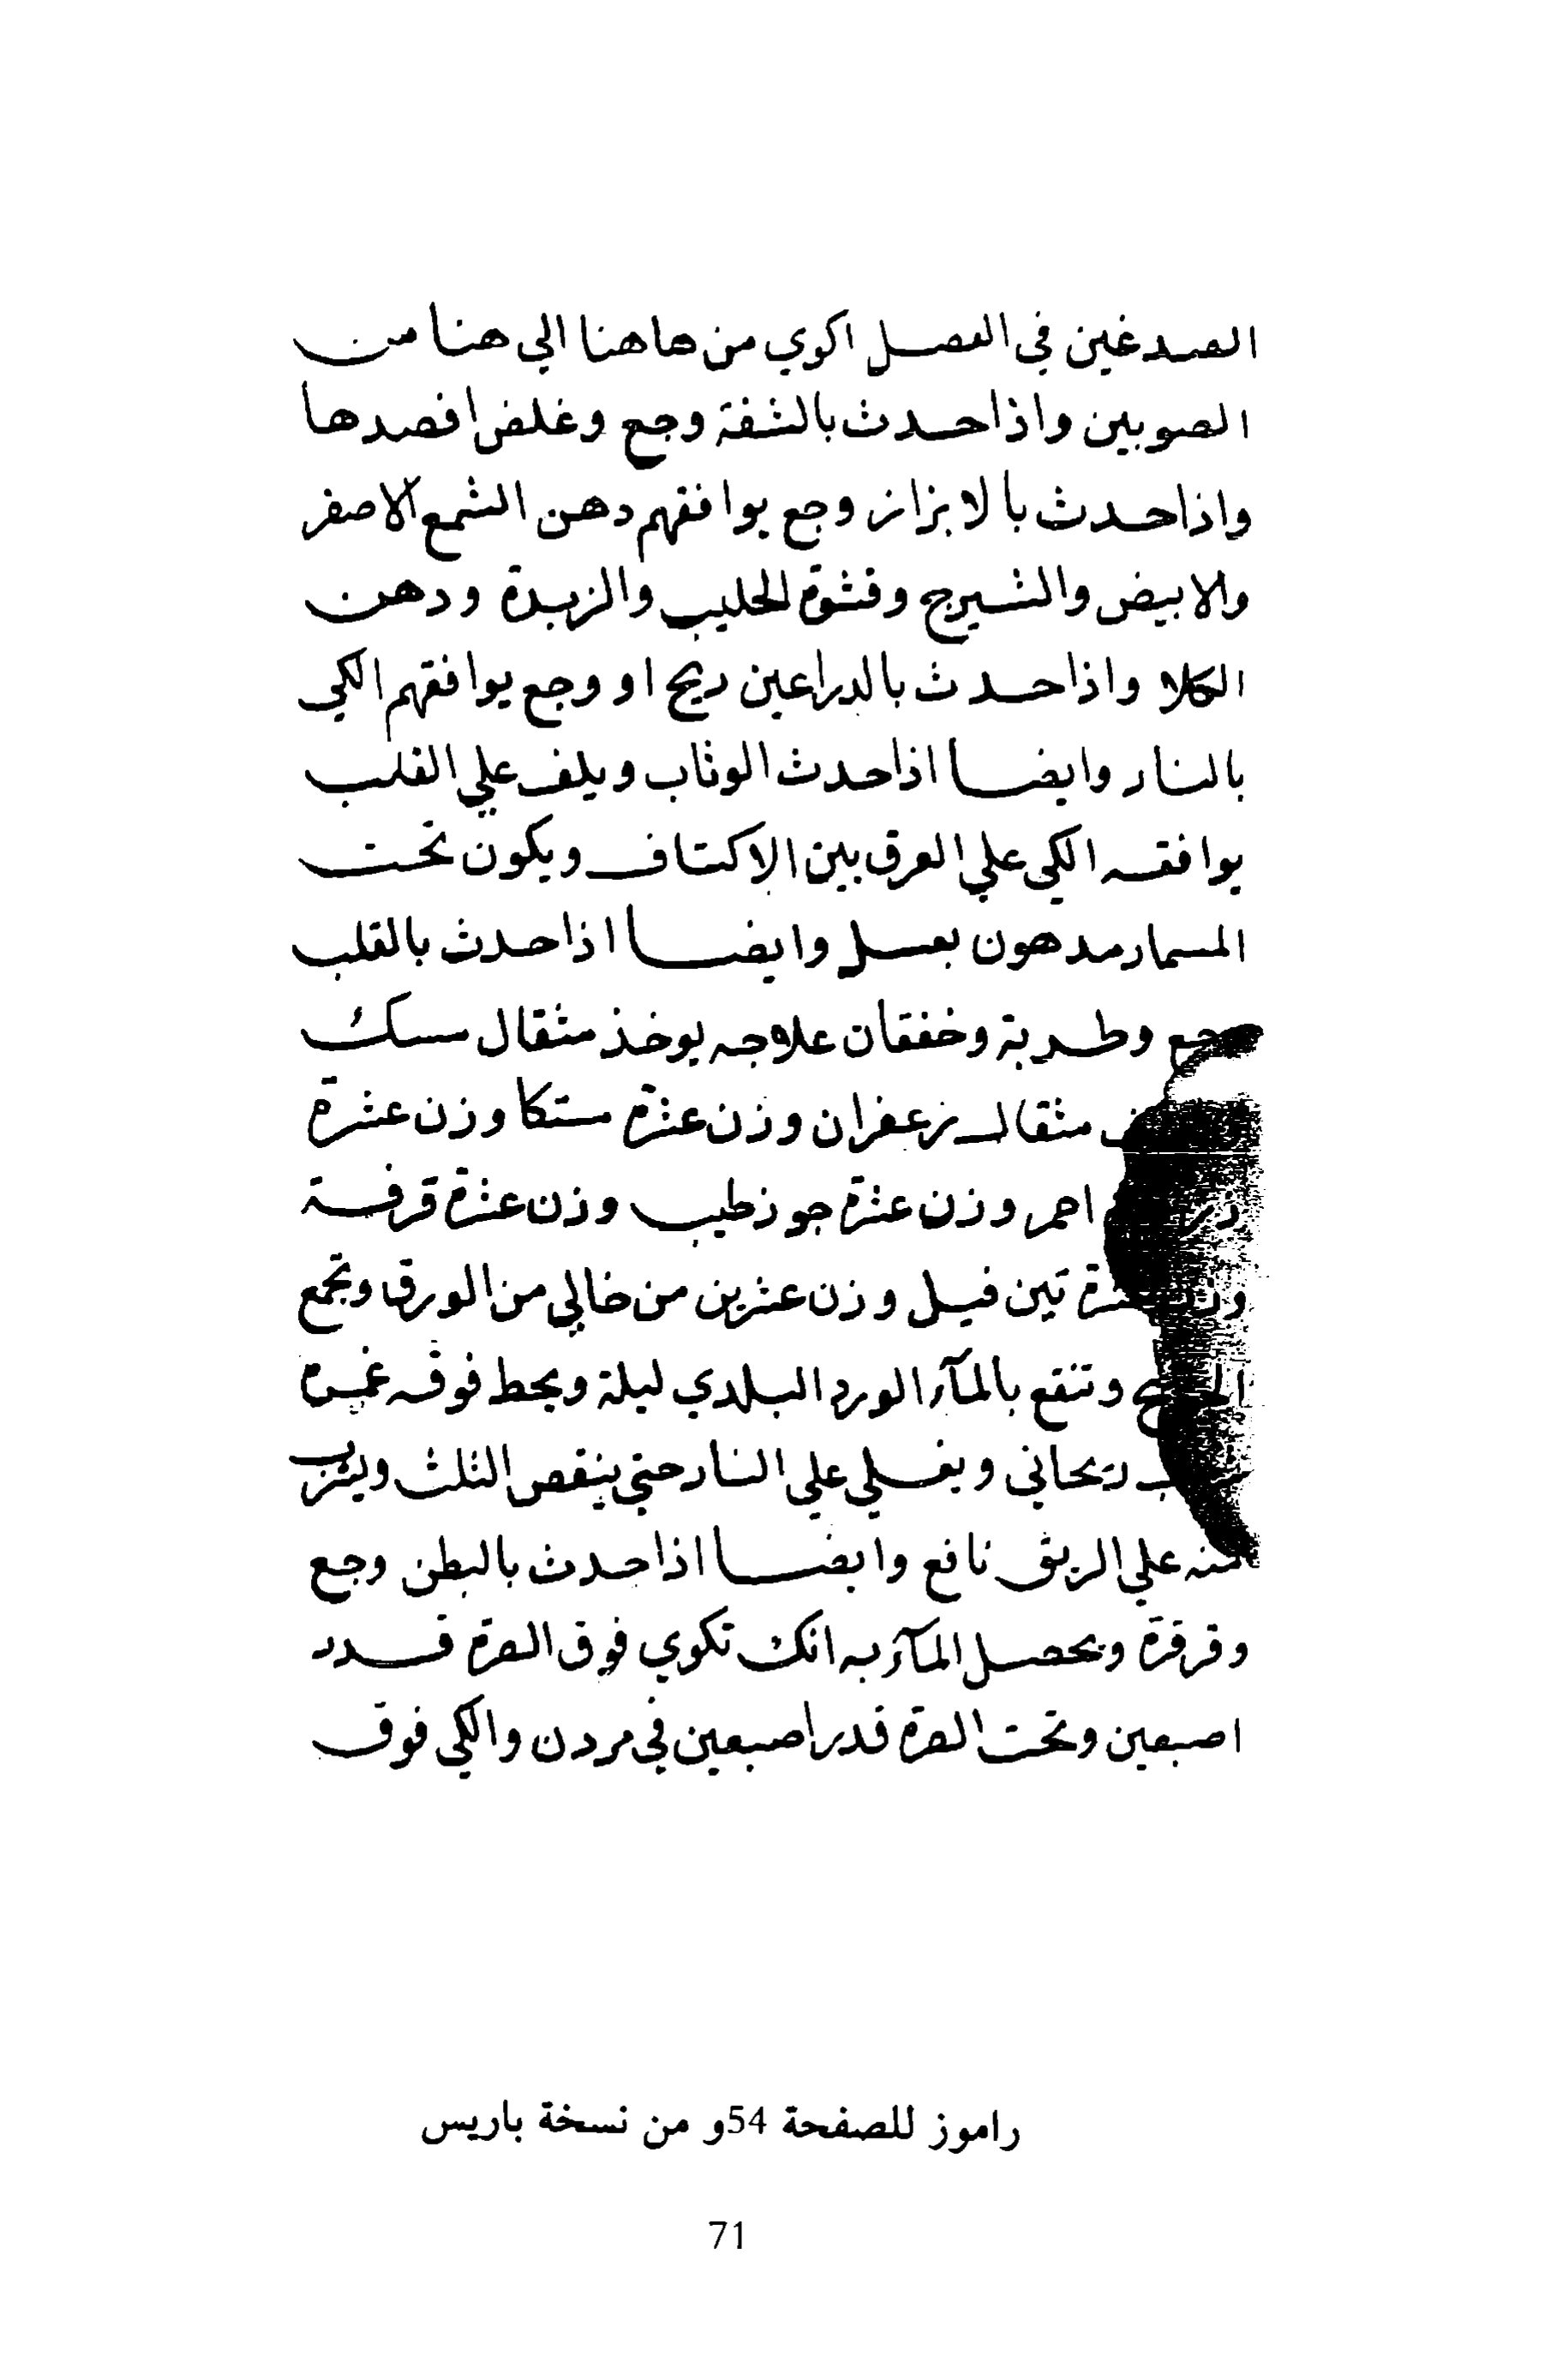 الصدغين في الفصل اكوي من هاهنا الي هنا من
الصوبين واذا حدث بالشفة وجع وغلض افصدها
واذا حدث بالابزاز وجع يوافقهم دهن الشمع الاصفر
والابيض والشيرج وقشوة الحليب والزبدة ودهن
الكلا واذا حدث بالدراعين ريح او وجع يوافقهم الكي
بالنار وايضا اذا حدث الوثاب ويلف علي القلب
يوافقه الكي علي العرق بين الاكتاف ويكون تحت
المسمار مدهون بعسل وايضا اذا حدث بالقلب
وجع وطربة وخفقان علاجه يوخذ مثقال مسك
مثقال زعفران وزن عشرة مستكا وزن عشرة
احمر وزن عشرة جوز طيب وزن عشرة قرفة
وزن عشرة تين فيل وزن عشرين من خالي من الورق وتجمع
وتنقع بالمآء الورد البلدي ليلة ويحط فوقه غمره
ريحاني ويغلي علي النار حتي ينقص الثلث ويشرب
منه علي الريق نافع وايضا اذا حدث بالبطن وجع
وقرقرة ويحصل المآء به انك تكوي فوق الصرة قدر
اصبعين وتحت الصرة قدر اصبعين في مردن والكي فوق
راموز للصفحة 54و من نسخة باريس
71